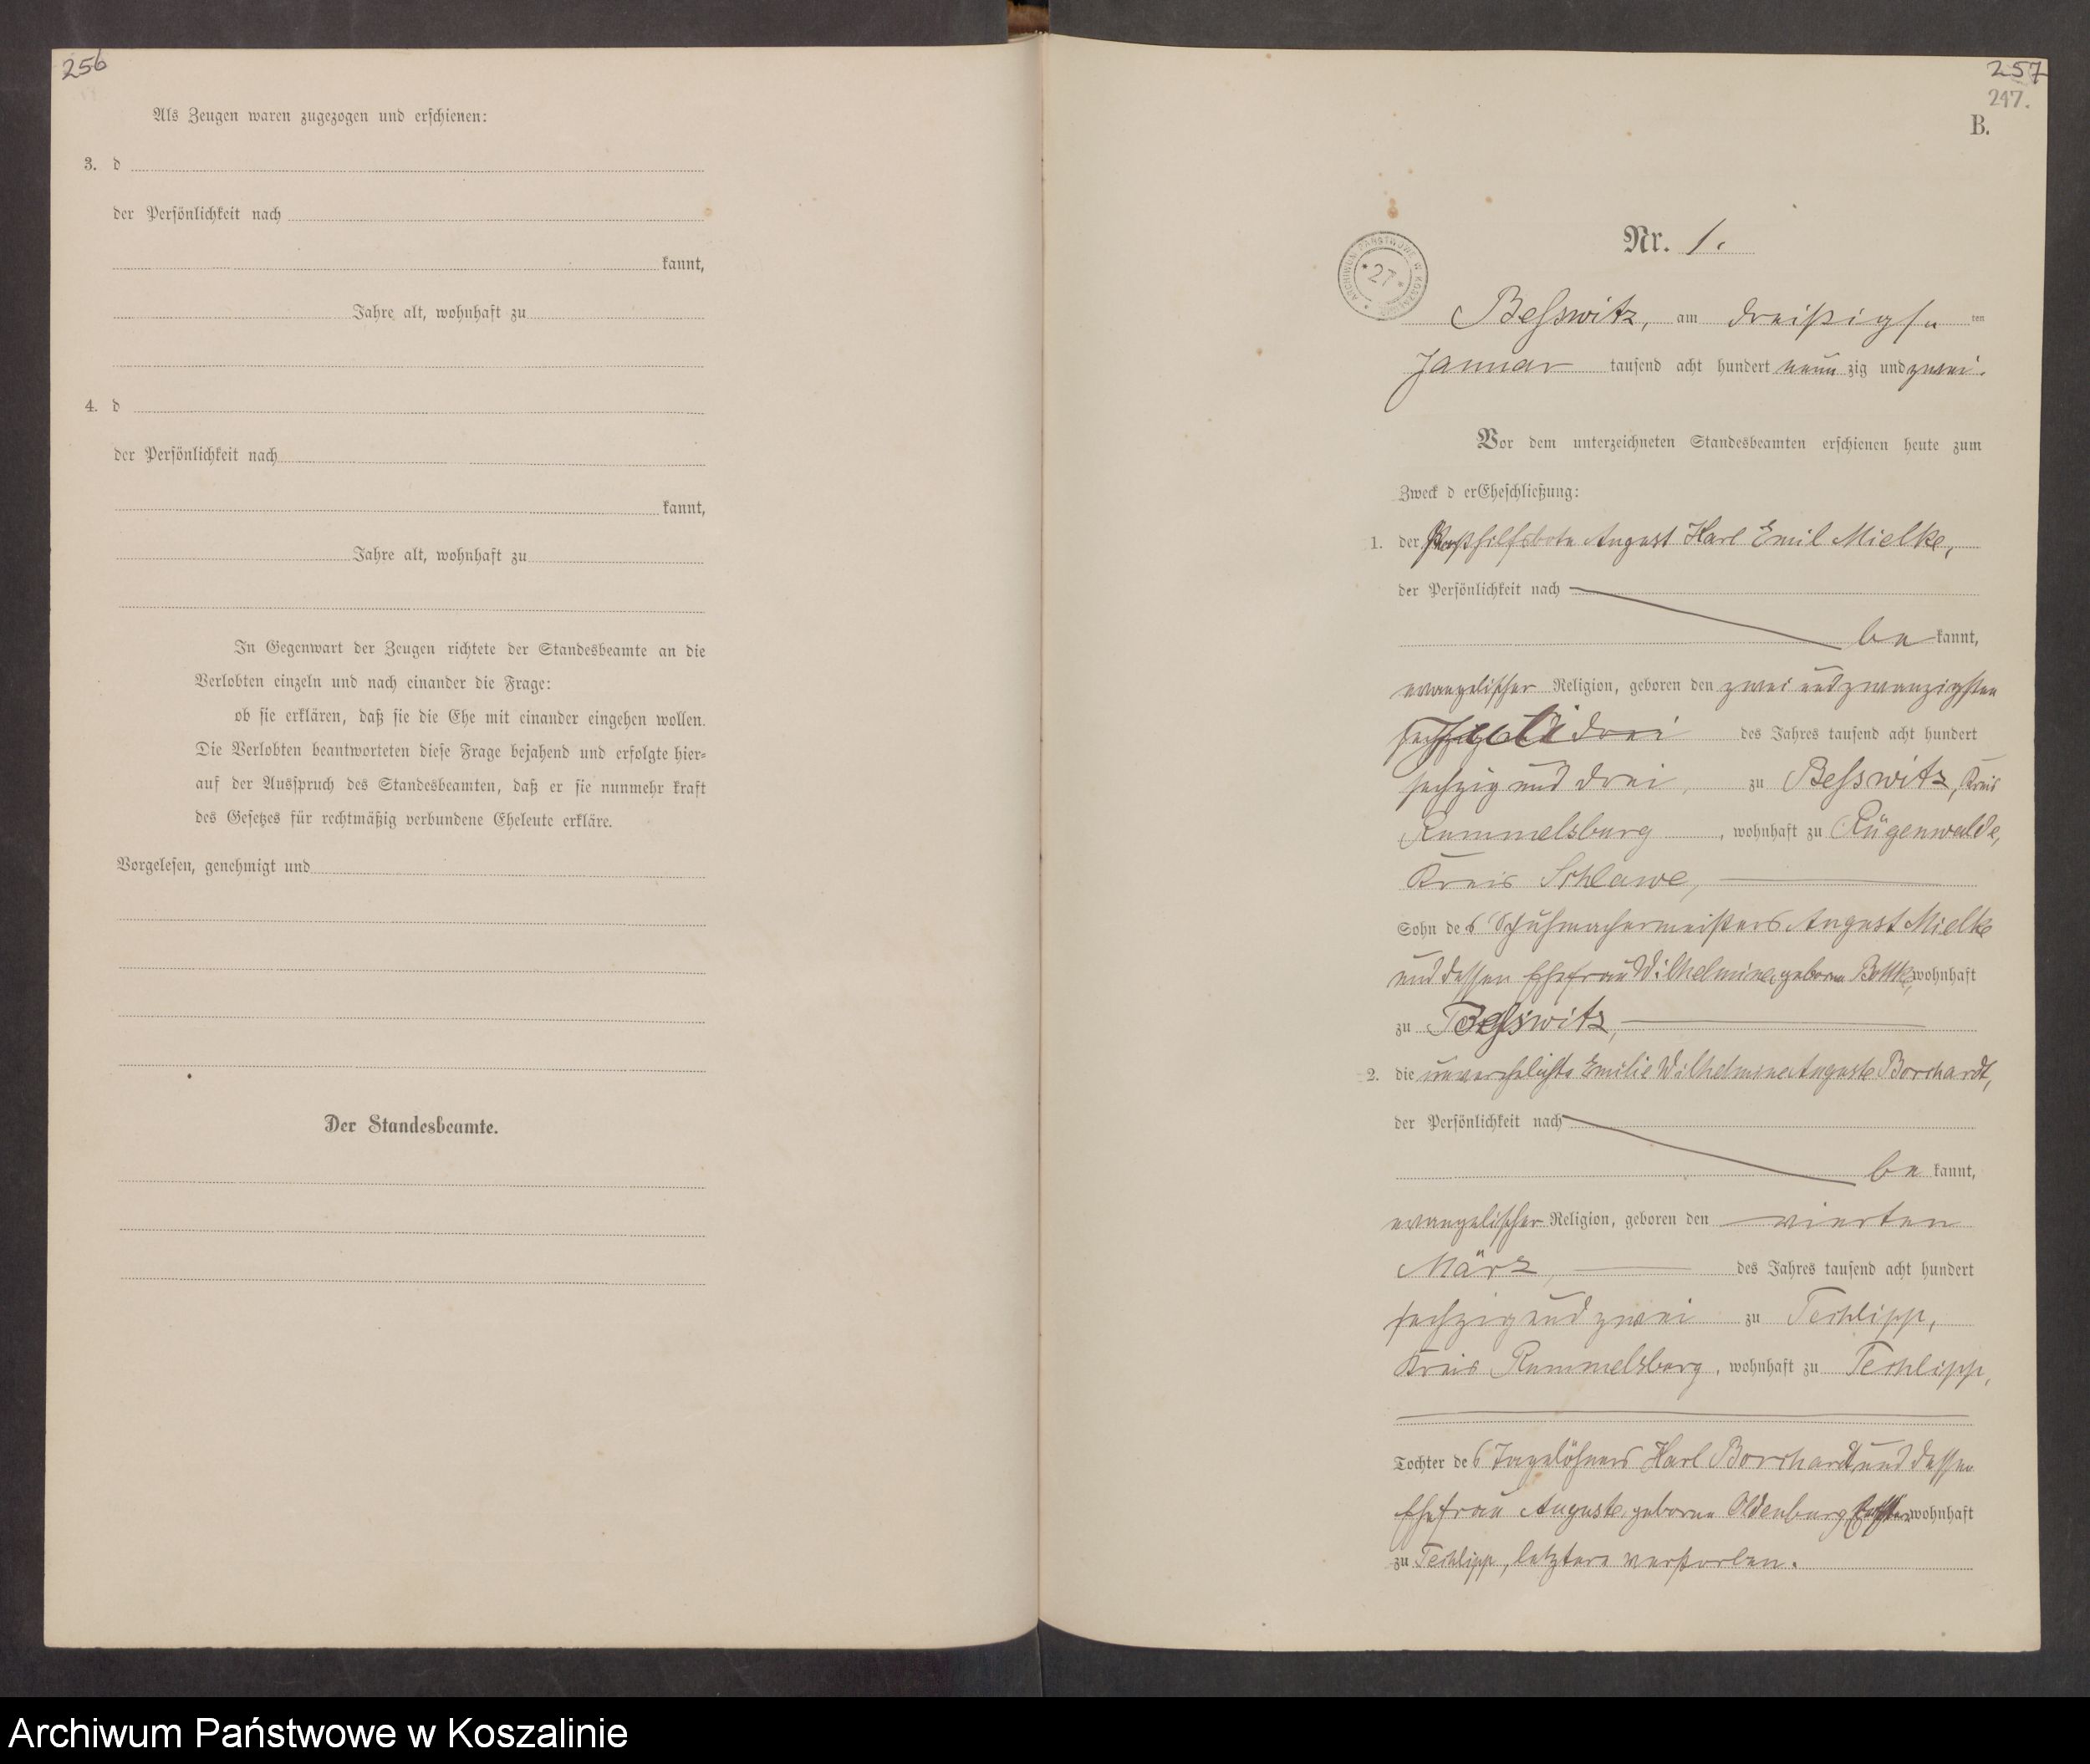 256
Als Zeugen waren zugezogen und erschienen:
3. d
der Persönlichkeit nach
kannt,
Jahre alt, wohnhaft zu
4. d
der Persönlichkeit nach
kannt,
Jahre alt, wohnhaft zu
In Gegenwart der Zeugen richtete der Standesbeamte an die
Verlobten einzeln und nach einander die Frage:
ob sie erklären, daß sie die Ehe mit einander eingehen wollen.
Die Verlobten beantworteten diese Frage bejahend und erfolgte hier-
auf der Ausspruch des Standesbeamten, daß er sie nunmehr kraft
des Gesetzes für rechtmäßig verbundene Eheleute erkläre.
Vorgelesen, genehmigt und
Der Standesbeamte.
257
247.
B.
Nr. 1.
ARCHIWUM PAŃSTWOWE W KOSZALINIE
* 27 *
Besswitz, am dreißigsten
Januar tausend acht hundert neunzig und zwei.
Vor dem unterzeichneten Standesbeamten erschienen heute zum
Zweck d er Eheschließung:
1. der Posthilfsbote August Karl Emil Mielke,
der Persönlichkeit nach
be kannt,
evangelischer Religion, geboren den zwei und zwanzigsten
Juli des Jahres tausend acht hundert
sechzig und drei, zu Besswitz, Kreis
Rummelsburg, wohnhaft zu Rügenwalde,
Kreis Schlawe,
Sohn des Schuhmachermeisters August Mielke
und dessen Ehefrau Wilhelmine, geborne wohnhaft
zu Besswitz,
2. die unverehelichte Emilie Wilhelmine Auguste Borchardt,
der Persönlichkeit nach
be kannt,
evangelischer Religion, geboren den vierten
März, des Jahres tausend acht hundert
sechzig und zwei zu Techlipp,
Kreis Rummelsburg, wohnhaft zu Techlipp,
Tochter des Tagelöhners Karl Borchardt und dessen
Ehefrau Auguste, geborne Oldenburg wohnhaft
zu Techlipp, letztere verstorben.
Archiwum Państwowe w Koszalinie